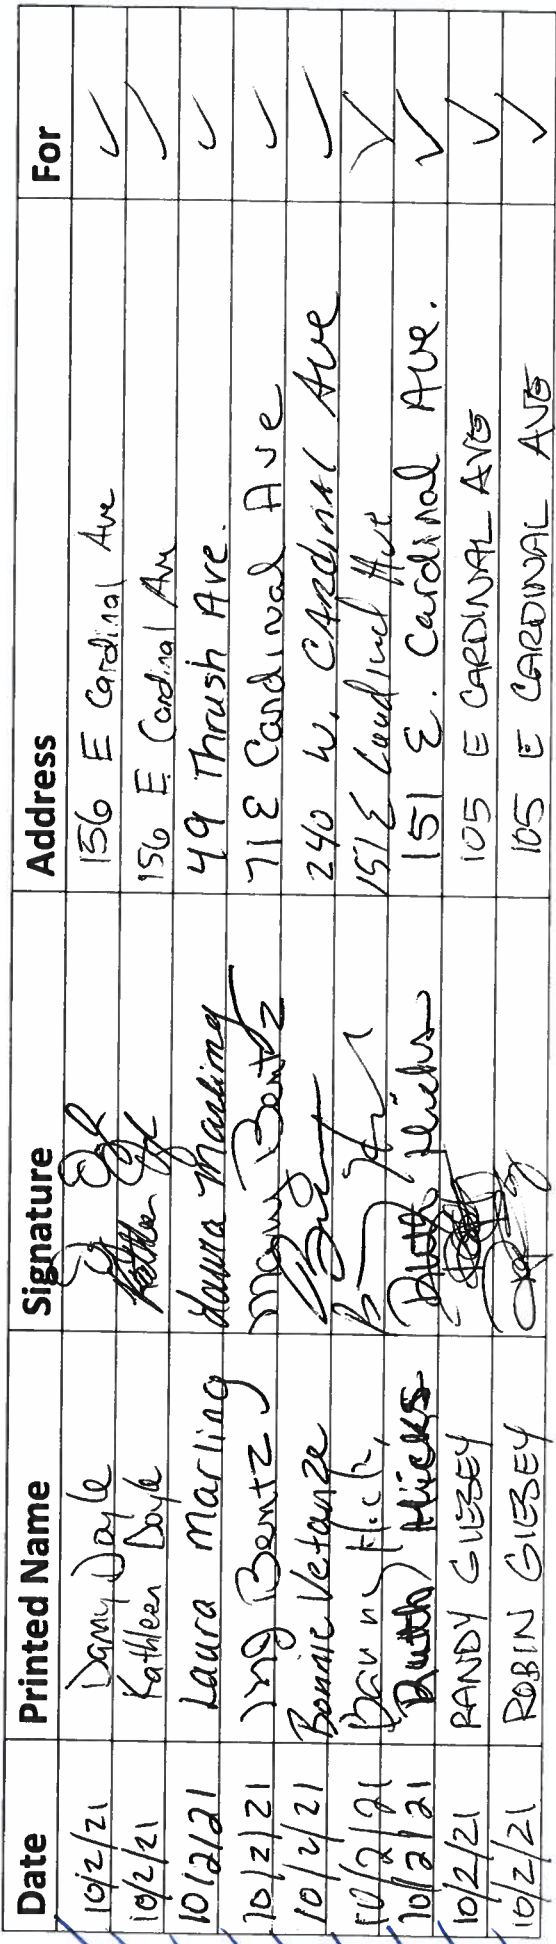 Date Printed Name Signature Address For
10/2/21 Danny Doyle 156 E Cardinal Ave ✓
10/2/21 Kathleen Doyle Kathleen 156 E. Cardinal Ave ✓
10/2/21 Laura Marling Laura Marling 49 Thrush Ave. ✓
10/2/21 Bentz Bentz 71 E Cardinal Ave ✓
10/2/21 Bonnie Vetanze 240 W. CARDINAL AVE ✓
10/2/21 151 E Cardinal Ave ✓
10/2/21 Ruth Hicks Ruth Hicks 151 E. Cardinal Ave. ✓
10/2/21 RANDY GIESEY 105 E CARDINAL AVE ✓
10/2/21 ROBIN GIESEY 105 E CARDINAL AVE ✓